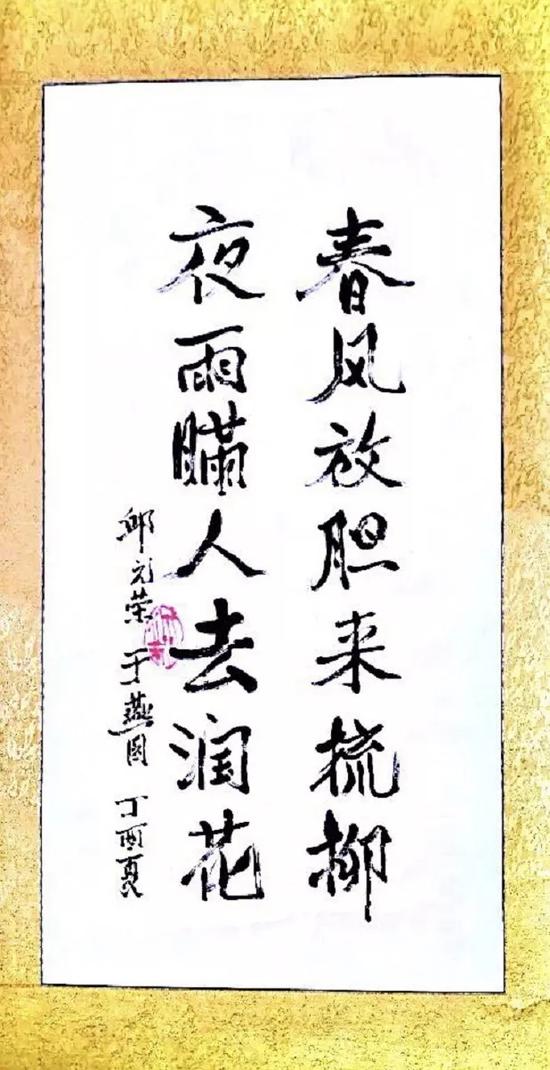 春风放胆来梳柳
夜雨瞒人去润花
邱元荣 于燕园 丁酉夏